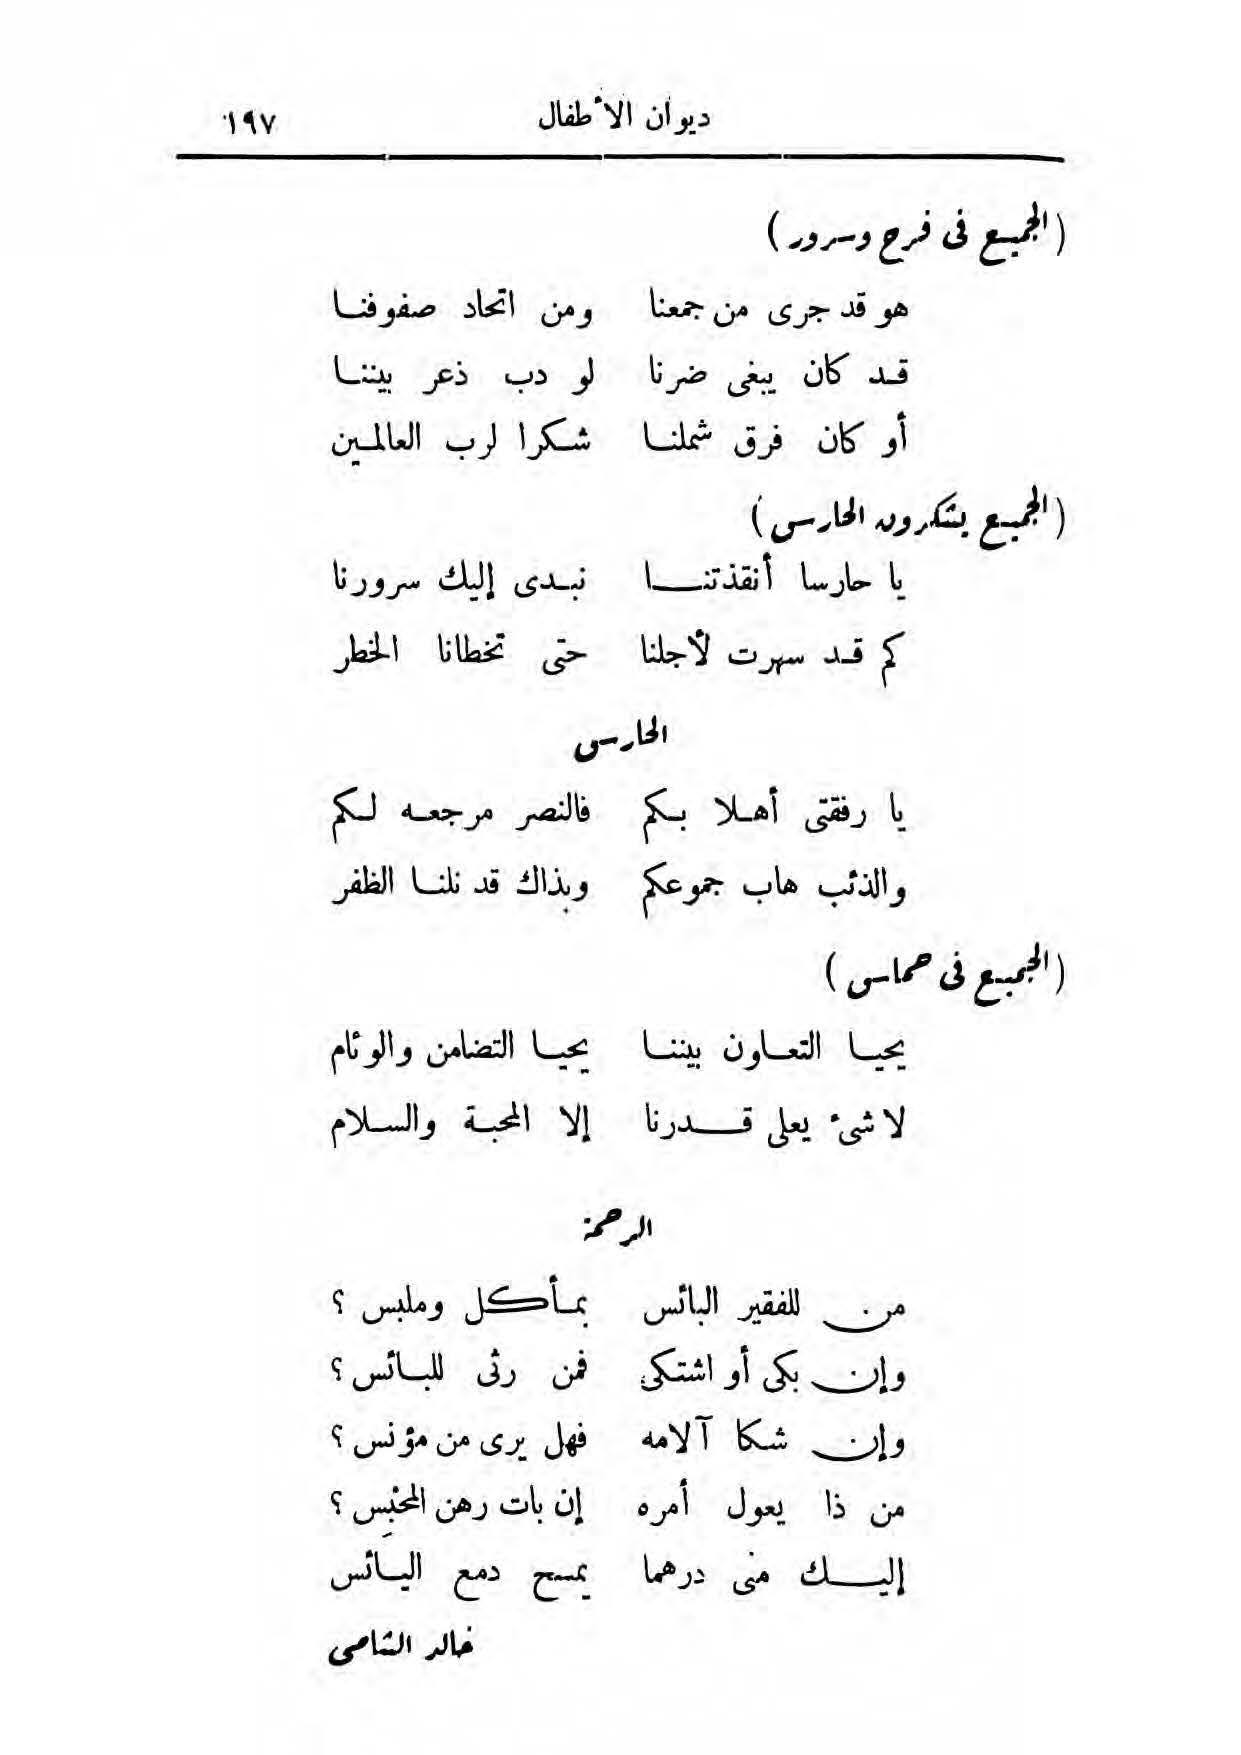 ديوان الأطفال ١٩٧
(الجميع فى فرح وسرور)
هو قد جرى من جمعنا ومن اتحاد صفوفنا
قد كان يبغى ضرنا لو دب ذعر بيننا
أو كان فرق شملنا شكرا لرب العالمين
(الجميع يشكرون الحارس)
يا حارسا أنقذتنا نبدى إليك سرورنا
كم قد سهرت لأجلنا حتى تخطانا الخطر
الحارس
يا رفقتى أهلا بكم فالنصر مرجعه لكم
والذئب هاب جموعكم وبذاك قد نلنا الظفر
(الجميع فى حماس)
يحيا التعاون بيننا يحيا التضامن والوئام
لا شىء يعلى قدرنا إلا المحبة والسلام
الرحمة
من للفقير البائس بمأكل وملبس ؟
وإن بكى أو اشتكى فمن رثى للبائس ؟
وإن شكا آلامه فهل يرى من مؤنس ؟
من ذا يعول أمره إن بات رهن المحبس ؟
إليك منى درهما يمسح دمع اليائس
خالد الشامى